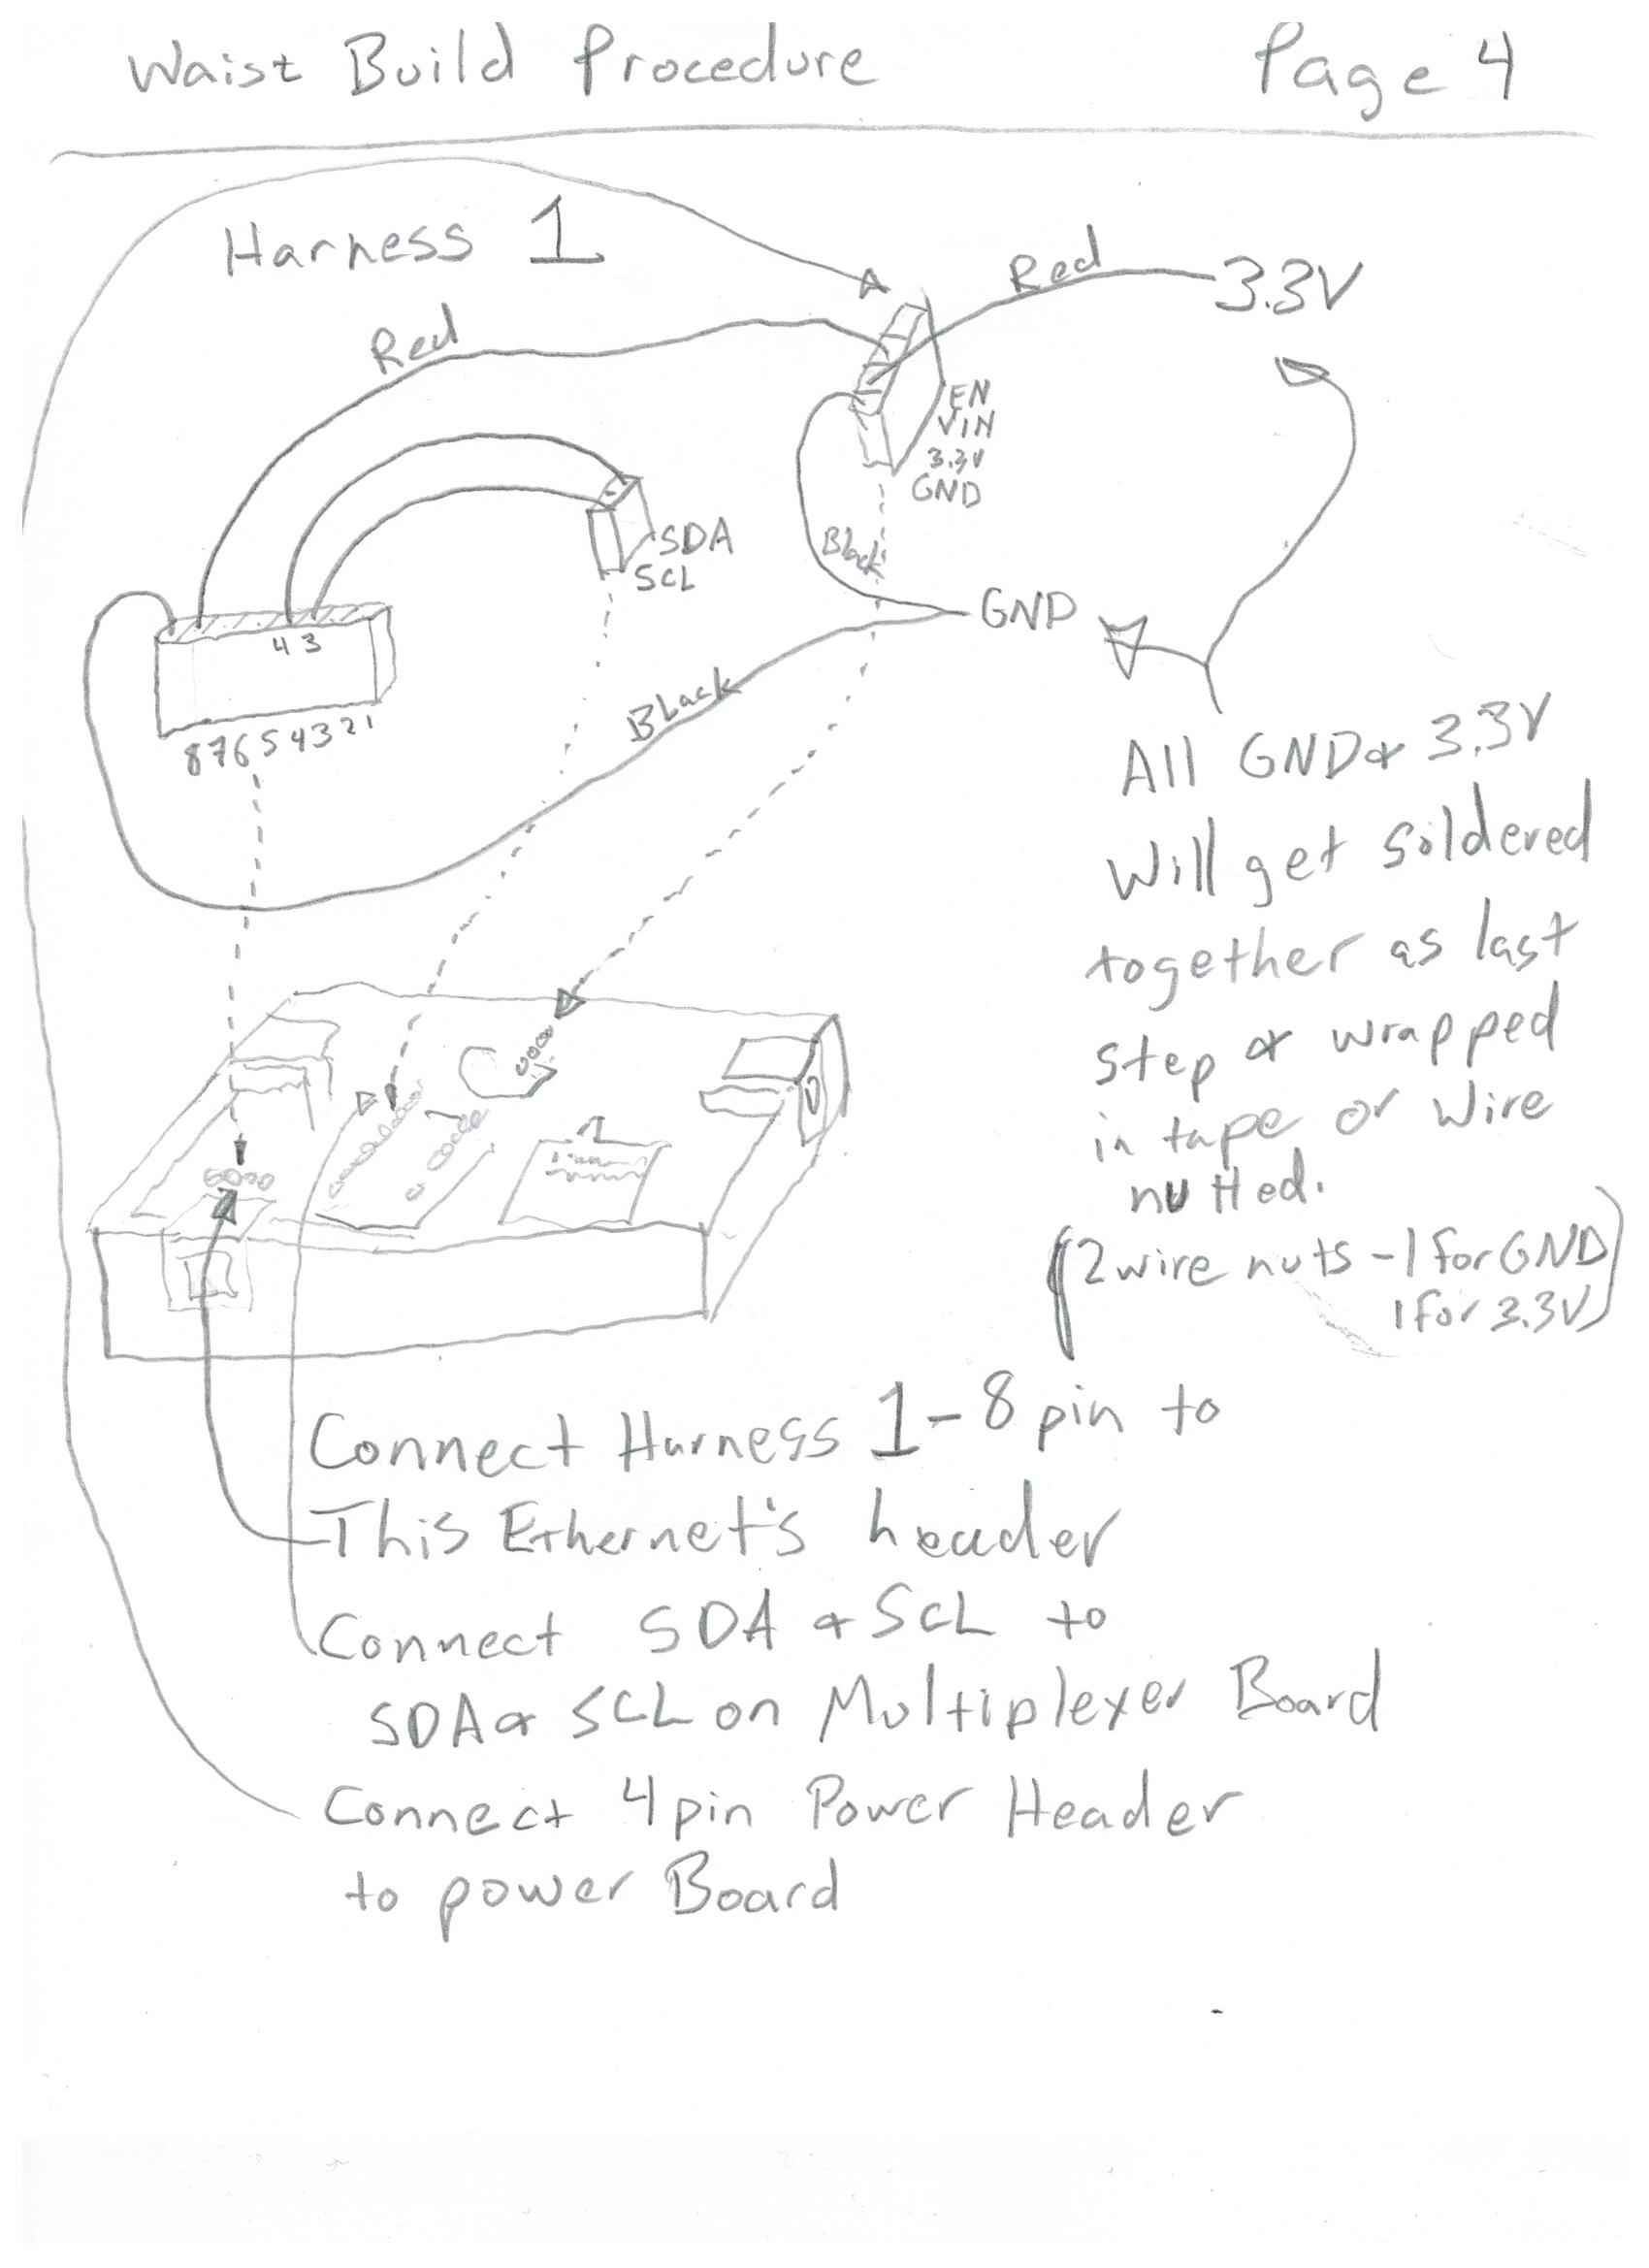 Waist Build Procedure Page 4
Harness 1
Red
Red
3.3V
EN
VIN
3.3V
GND
SDA
SCL
Black
GND
4 3
8 7 6 5 4 3 2 1
Black
All GND & 3.3V
will get soldered
together as last
step & wrapped
in tape or wire
nutted.
(2 wire nuts - 1 for GND
1 for 3.3V)
Connect Harness 1 - 8 pin to
This Ethernet's header
Connect SDA & SCL to
SDA & SCL on Multiplexer Board
Connect 4 pin Power Header
to power Board